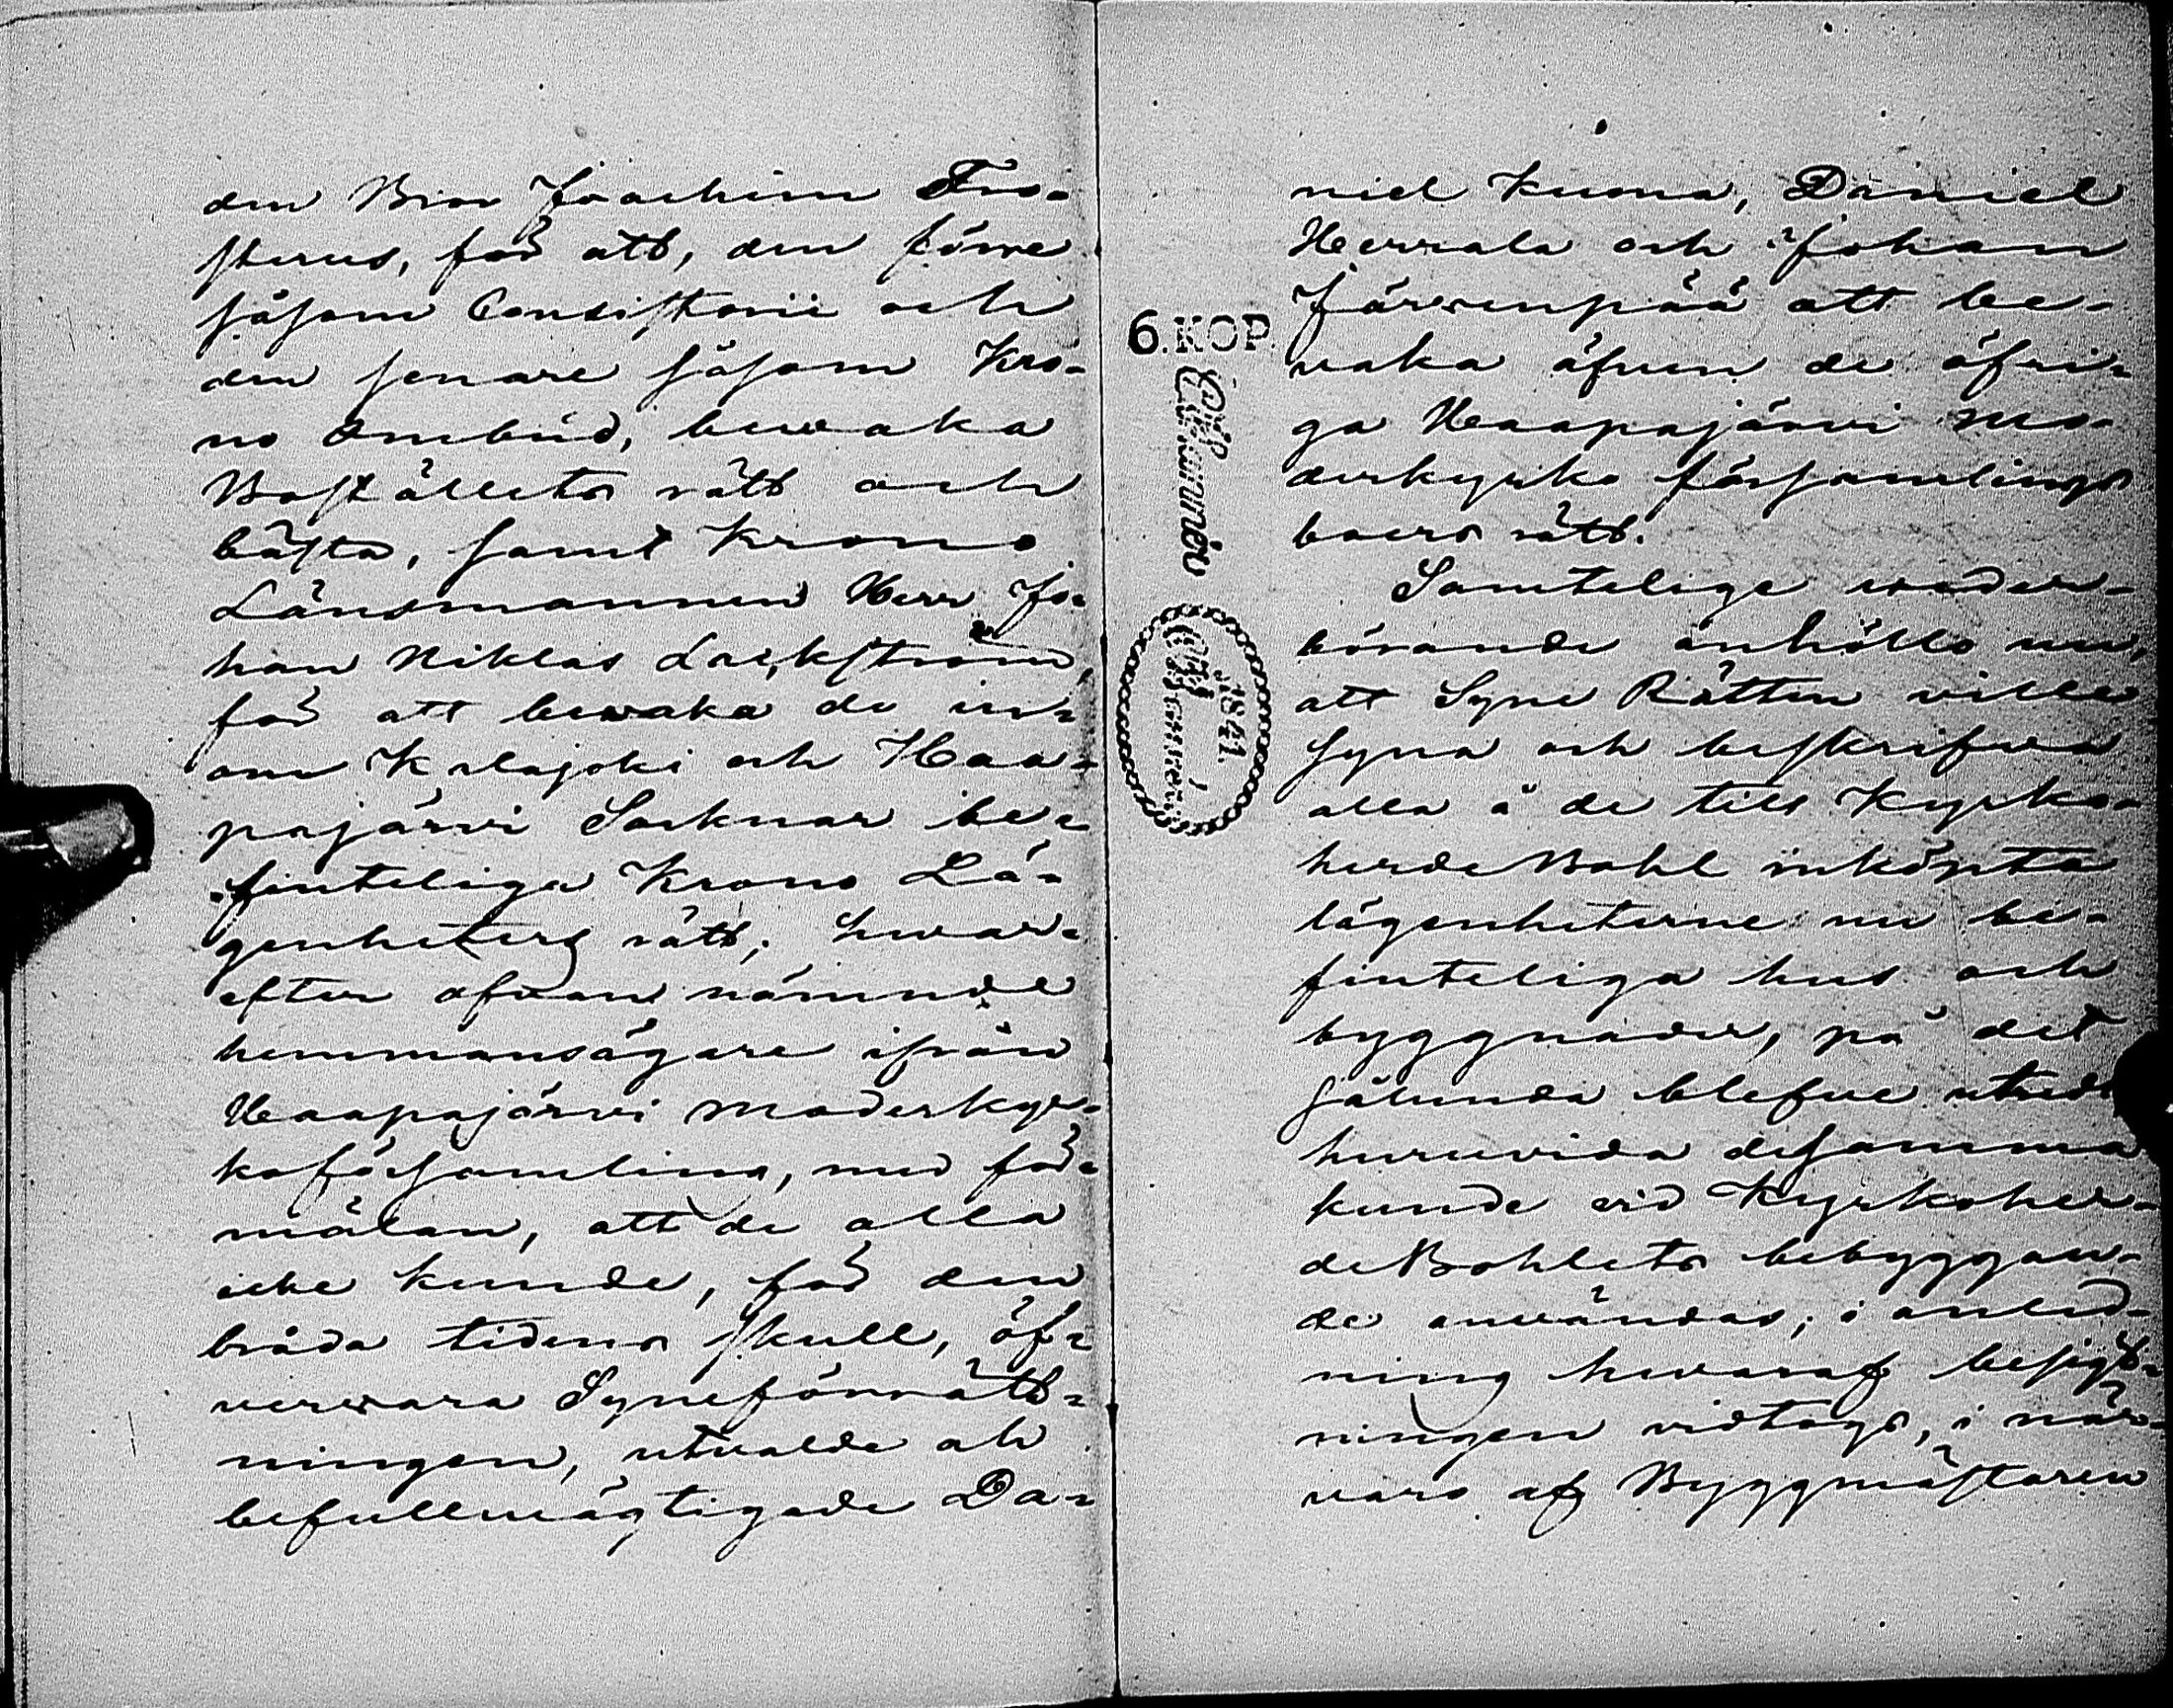 den Bror Joachim Fro-
sterus, för att, den förre
såsom Consistorii och
den senare såsom Kro-
no Ombud, bewaka
Boställets rätt och
bästa, samt Krono
Länsmannen Herr Jo-
han Niklas Lackström,
för att bewaka de in-
om Kalajoki och Haa-
pajärvi Socknar be-
finteliga Krono Lä-
genheters rätt; hwar-
efter ofvan nämnde
hemmansägare ifrån
Haapajärvi moderkyr-
koförsamling, med för-
mälan, att de alla
icke kunde, för den
bråda tidens skull, öf-
vervara Syneförrätt-
ningen, utvalde och
befullmägtigade Da-
niel Kuona, Daniel
Herrala och Johan
Järvenpää att be-
vaka äfven de öfri-
ga Haapajärvi mo-
derkyrko församlings
boers rätt.
Samtelige veder-
börande anhöllo nu,
att Syne Rätten ville
syna och beskrifva
alla å de till Kyrko-
herde Bohl inköpta
lägenheterne nu be-
finteliga hus och
byggnader, på det
sålunda blefve utredt
huruvida desamma
kunde vid Kyrkoher-
de Bohlets bebyggan-
de användas; i anled-
ning hwaraf besigt-
ningen vidtogs, i när-
varo af Byggmästaren
6. KOP.
1841.